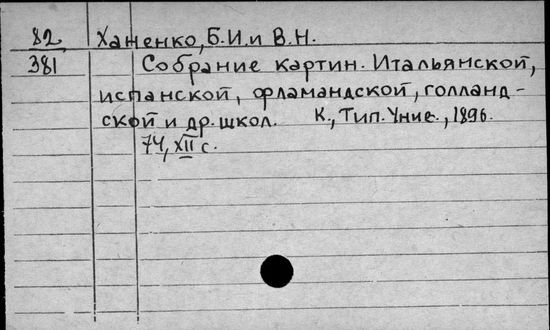 82 Ханенко, Б.И. и В.Н.
381 Собрание картин. Итальянской,
испанской, фламандской, голланд-
ской и др. школ. К., Тип. Унив., 1896.
74, XII с.